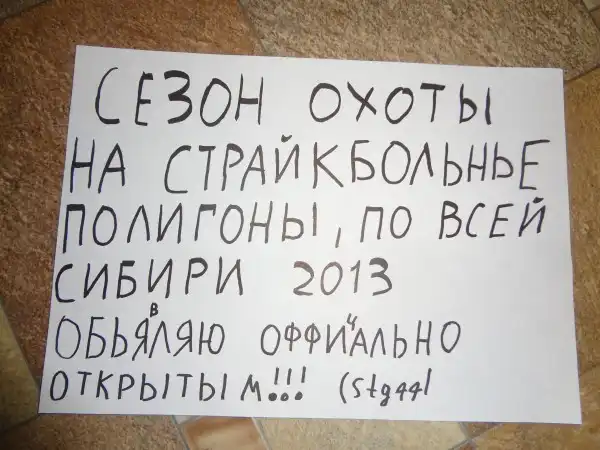 СЕЗОН ОХОТЫ
НА СТРАЙКБОЛЬНЬЕ
ПОЛИГОНЫ, ПО ВСЕЙ
СИБИРИ 2013
ОБЬЯВЛЯЮ ОФФИЧАЛЬНО
ОТКРЫТЫМ!!! (Stg44)